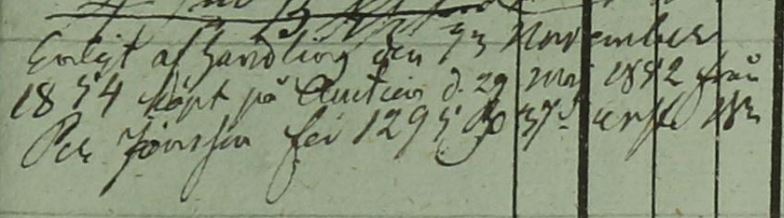 Enligt afhandling den 23 November
1854 köpt på Auction d. 29 Maj 1852 från
Per Jönsson för 1295